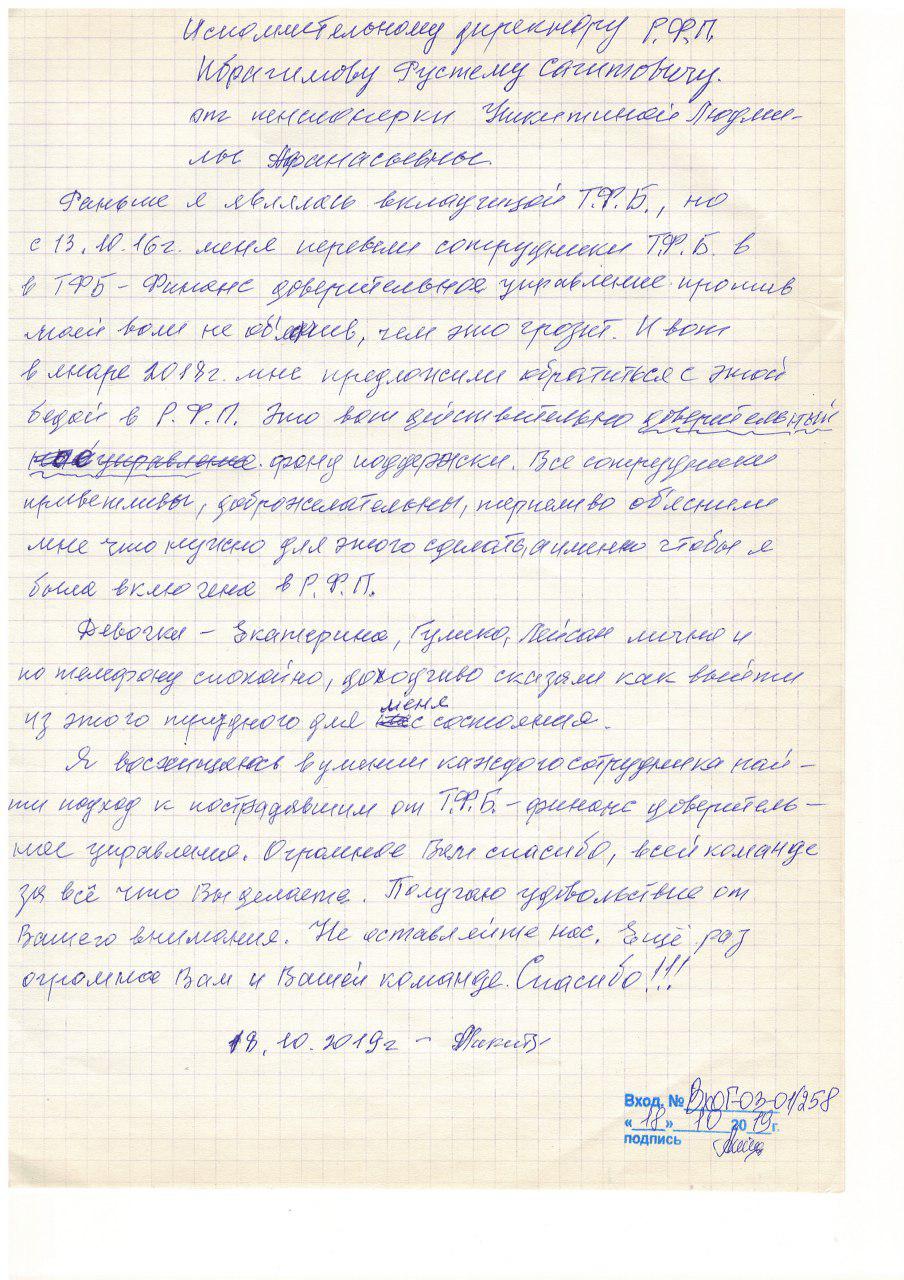 Исполнительному директору Р.Ф.П.
Ибрагимову Рустему Сагитовичу.
от пенсионерки Никитиной Людми-
лы Афанасьевны.
Раньше я являлась вкладчицой Т.Ф.Б., но
с 13.10.16г. меня перевели сотрудники Т.Ф.Б. в
в ТФБ - Финанс доверительное управление против
моей воли не об'яснив, чем это грозит. И вот
в январе 2018г. мне предложили обратиться с этой
бедой в Р.Ф.П. Это вот действительно доверительный
ное управление. фонд поддержки. Все сотрудники
приветливы, доброжелательны, терпеливо об'яснили
мне что нужно для этого сделать, а именно чтобы я
была включена в Р.Ф.П.
Девочки - Екатерина, Гулина, Лейсан лично и
по телефону спокойно, доходчиво сказали как выйти
из этого трудного для меня состояния.
Я восхищаюсь в умении каждого сотрудника най-
ти подход к пострадавшим от Т.Ф.Б. - финанс доверитель-
ное управление. Огромное Вам спасибо, всей команде
за всё что Вы делаете. Получаю удовольствие от
Вашего внимания. Не оставляйте нас. Ещё раз
огромное Вам и Вашей команде. Спасибо!!!
18.10.2019г -
Вход. № ВхОГ-03-01/258
«18» 10 2019г.
подпись